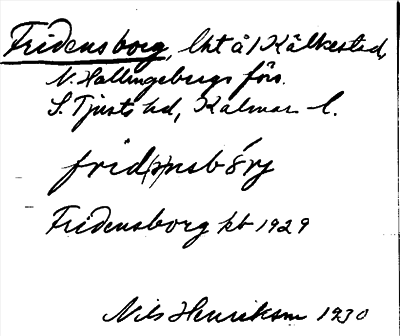 Fridensborg, lht å 1 Kälkestad,
N. Hallingebergs förs.
S. Tjusts hd, Kalmar l.
frid(ə)nsbórj
Fridensborg kb 1929
Nils Henrikson 1930